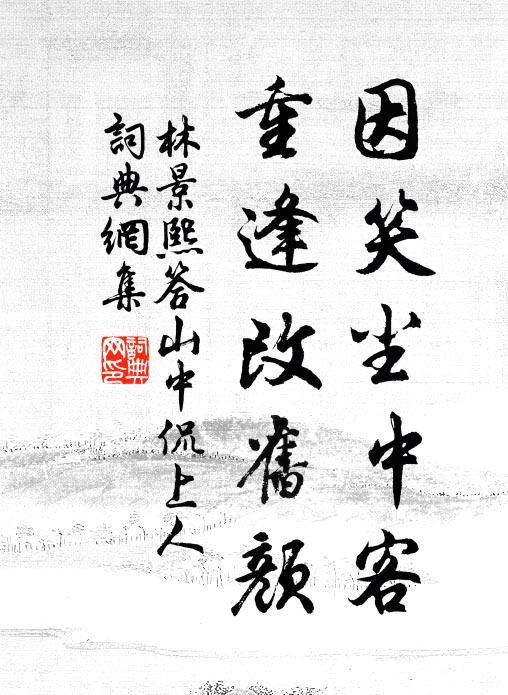 因笑尘中客
重逢改舊顏
林景熙答山中侃上人
詞典網集
詞典
网印